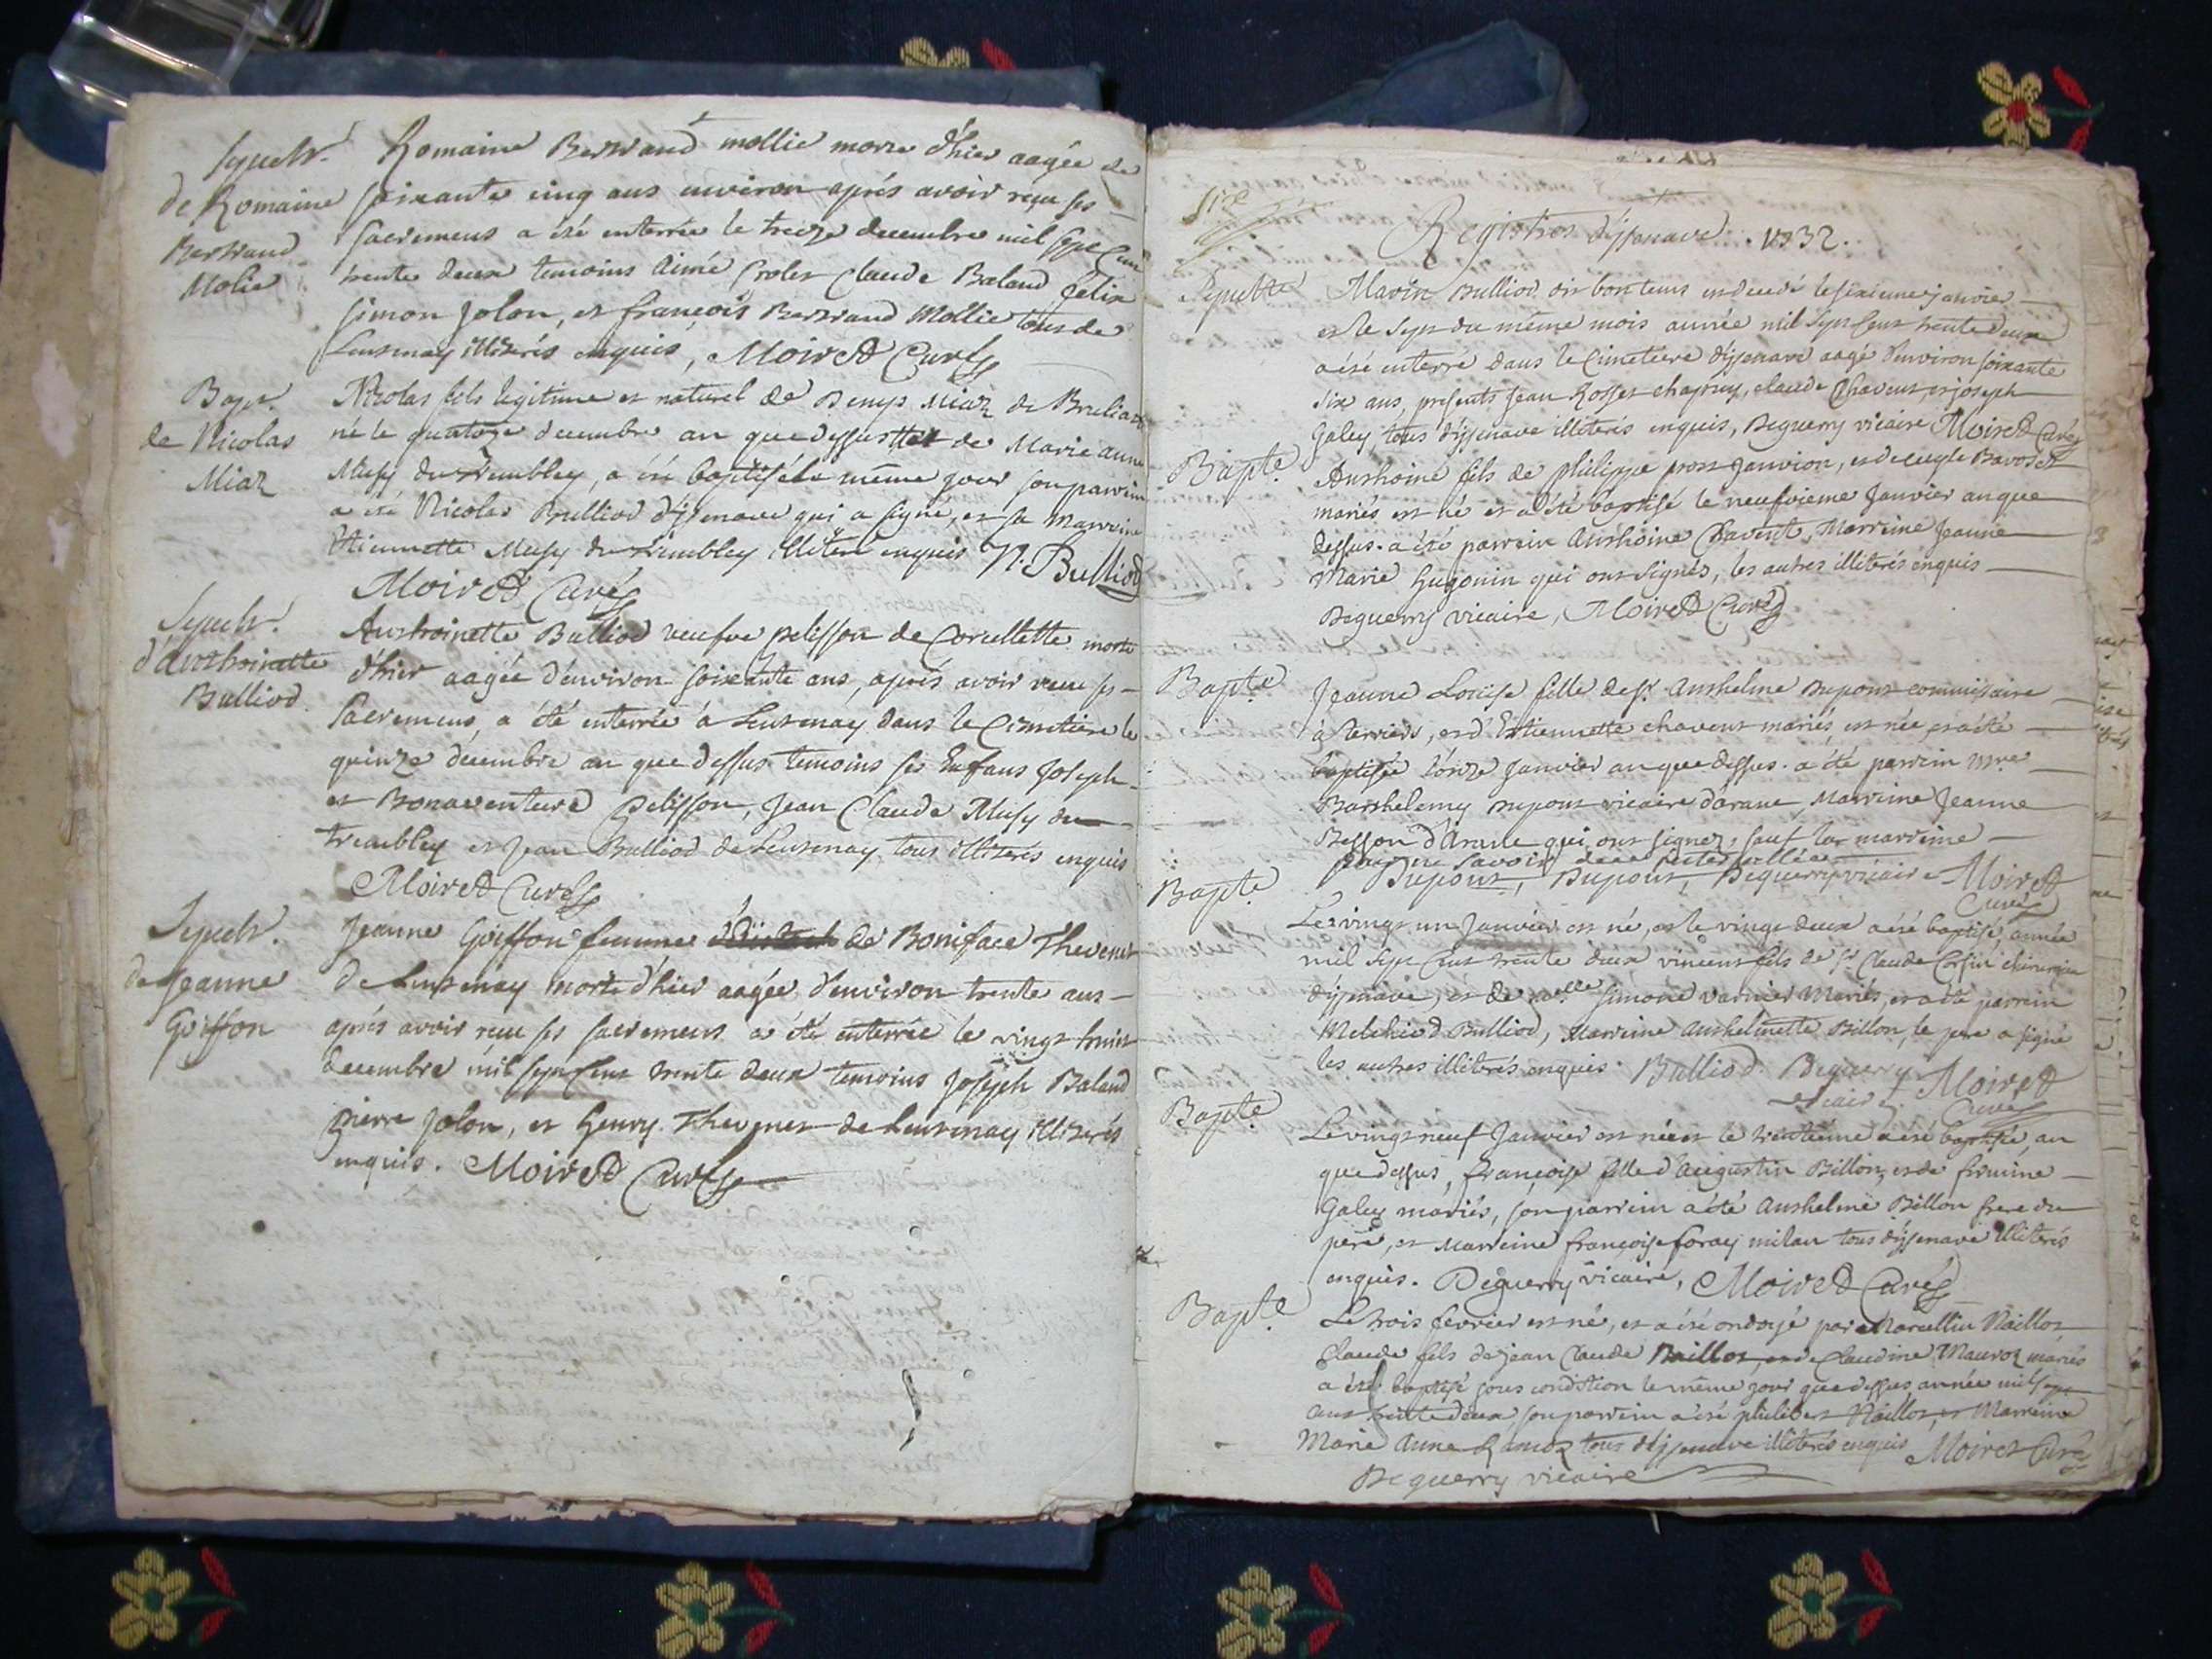 Sepult.
de Romaine
Bertrand
Molie
Romaine Bertrand mollie morte d'hier aagée de
soixante cinq ans environ aprés avoir reçu ses
sacremens a été enterrée le treize decembre mil sept cent
trente deux temoins Aimé Croles Claude Baland felix
simon Jolon, et françois Bertrand Mollie tous de
Leutenay illiterés enquis, Moiret Curé
Bapt.
de Nicolas
Miaz
Nicolas fils legitime et naturel de Denys Miaz de
né le quatorze decembre an que dessus et de Marie anne
Musy du Trembley, a été baptisé le même jour son parrein
a été Nicolas Bulliod d'Issenave qui a signé, et sa Marreine
Etiennette Musy du Trembley illiteré enquis N. Bulliod
Moiret Curé
Sepult.
d'Anthoinette
Bulliod
Anthoinette Bulliod veufve pelisson de Corcellette morte
d'hier aagée d'environ soixante ans, aprés avoir receu ses
Sacremens, a été enterrée a Leutenay dans le Cimetiere le
quinze decembre an que dessus temoins ses Enfans Joseph
et Bonaventure Pelisson, Jean Claude Musy du
trembley et Jean Bulliod de Leutenay tous illiterés enquis
Moiret Curé
Sepult.
de Jeanne
Goiffon
Jeanne Goiffon femme de Boniface Thevenet
de Leutenay morte d'hier aagée d'environ trente ans
aprés avoir reçu ses sacremens a été enterrée le vingt huit
decembre mil sept cent trente deux temoins Joseph Baland
Pierre Jolon, et henry Thevenet de Leutenay illiterés
enquis. Moiret Curé
Registres d'Issenave. 1732.
Sepulte
Marin Bulliod dit bontems est decedé le sixieme janvier
et le sept du même mois année mil sept cent trente deux
a été enterré dans le Cimetiere d'Issenave aagé d'environ soixante
six ans, presents Jean Rosset chapuy, claude Chavent, et joseph
Galey tous d'Issenave illiterés enquis, Deguerry vicaire Moiret Curé
Bapte.
Anthoine fils de philippe prost Janvion, et de
mariés est né et a été baptisé le neufvieme Janvier an que
dessus. a été parrein Anthoine Chavent, Marreine Jeanne
Marie Gugonin qui ont signés, les autres illiterés enquis
Deguerry vicaire, Moiret Curé
Bapte.
Jeanne Loüise fille de sr. Anthelme Dupont commissaire
à terriers, et d'Estiennette chavent mariés, est née et a été
baptisée l'onze Janvier an que dessus. a été parrein Mre
Barthelemy Dupont vicaire d'arane, Marreine Jeanne
Besson d'Arane qui ont signez, sauf la marreine
pour ne savoir
Dupont, Dupont, Deguerry vicaire Moiret
Curé
Bapte.
Le vingt un Janvier est né, et le vingt deux a été baptisé, année
mil sept cent trente deux vincent fils de sr Claude Corsin chirurgien
d'Issenave, et de delle Simone varnier Mariés, et a été parrein
Melchiod Bulliod, Marreine Anthelmette Billon, le pere a signé
les autres illiterés enquis. Bulliod. Deguerry
vicaire Moiret
Curé
Bapte.
Le vingt neuf Janvier est née et le trentieme a été baptisée, an
que dessus, françoise fille d'Augustin Billion, et de firmine
Galey mariés, son parrein a été Anthelme Billon frere du
pere, et Marreine françoise foray milan tous d'Issenave illiterés
enquis. Deguerry vicaire, Moiret Curé
Bapte.
Le trois fevrier est né, et a été ondoyé par Marcellin Naillot
Claude fils de jean Claude Naillot et de Claudine Mauroz mariés
a été baptisé sous condition le même jour que dessus année mil sept
cent trente deux son parrein a été philibert Naillot, et Marreine
Marie Anne tous d'Issenave illiterés enquis Moiret Curé
Deguerry vicaire